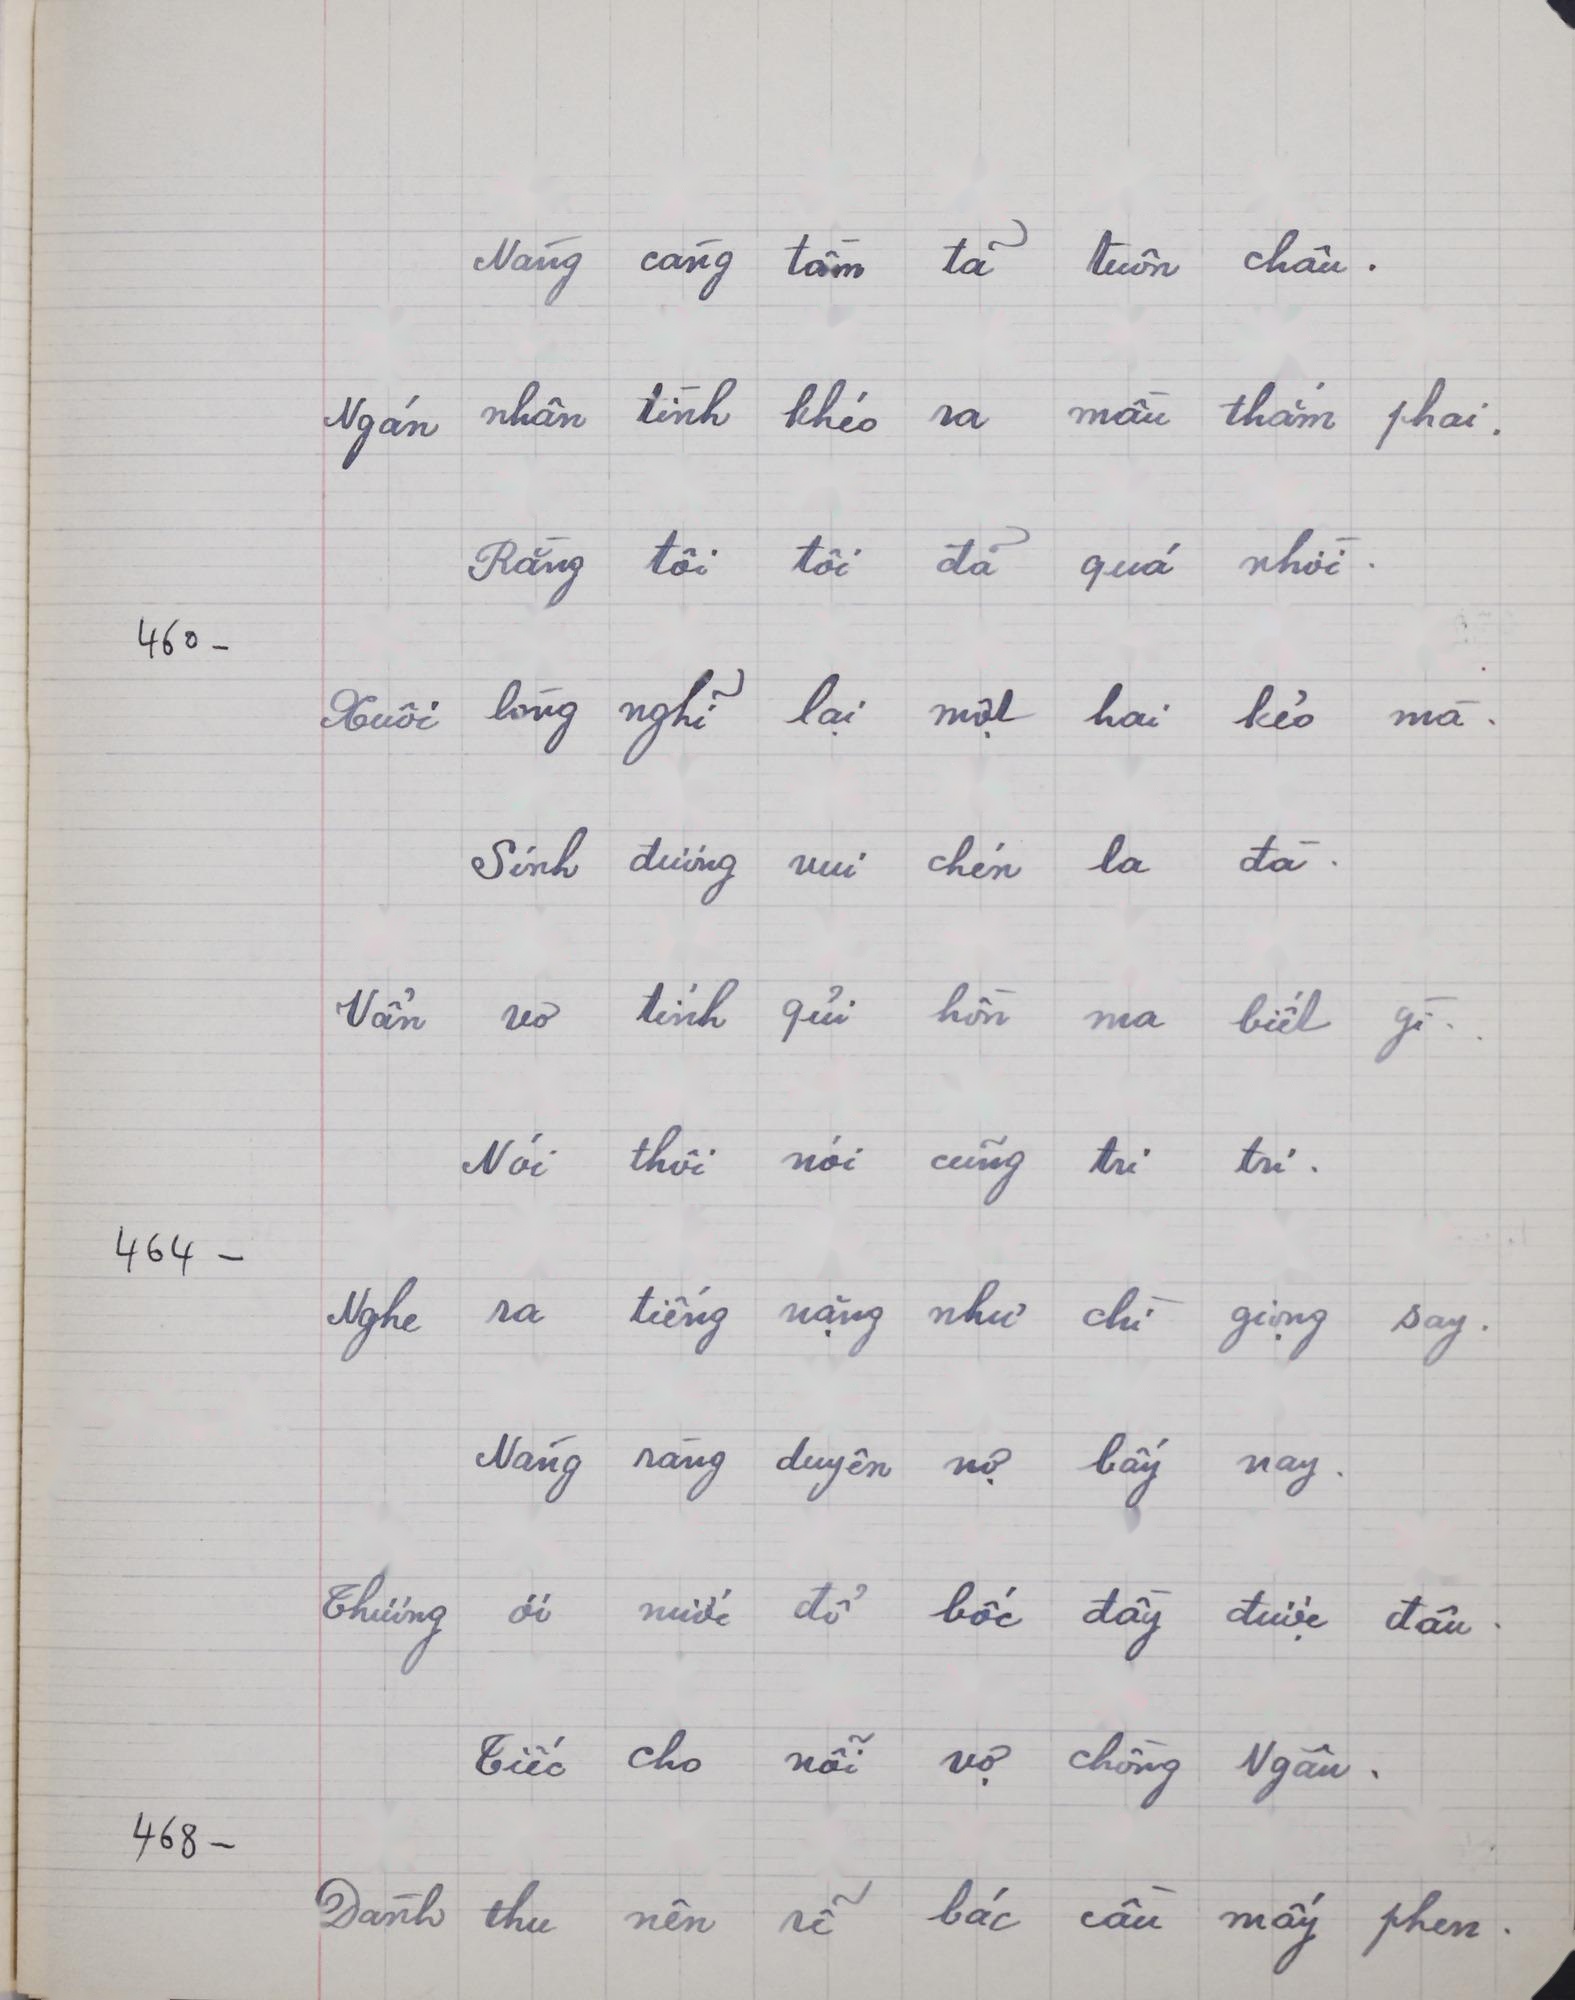 Nàng càng tầm tã tuôn châu.
Ngán nhân tình khéo ra mầu thắm phai.
Rằng tôi tôi đã quá nhời.
460-
Xuôi lòng nghĩ lại một hai kẻo mà.
Sinh đương vui chén la đà.
Vẩn vơ tính quỉ hồn ma biết gì.
Nói thôi nói cũng tri tri.
464-
Nghe ra tiếng nặng như chì giọng say.
Nàng rằng duyên nợ bấy nay.
Thương ôi nước đổ bốc đầy được đâu.
Tiếc cho nỗi vợ chồng Ngâu.
468-
Dành thu nên rễ bắc cầu mấy phen.